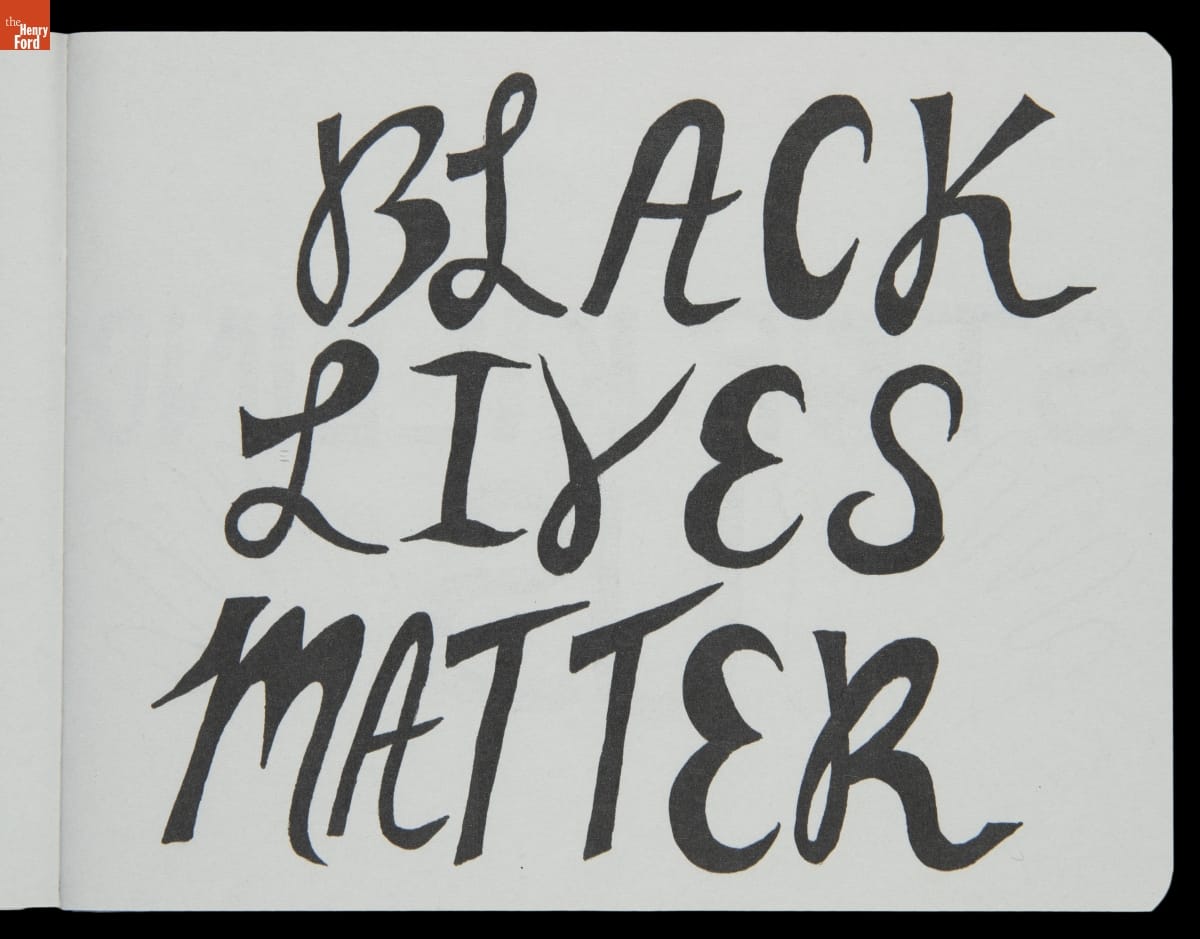 the
Henry
Ford
BLACK
LIVES
MATTER